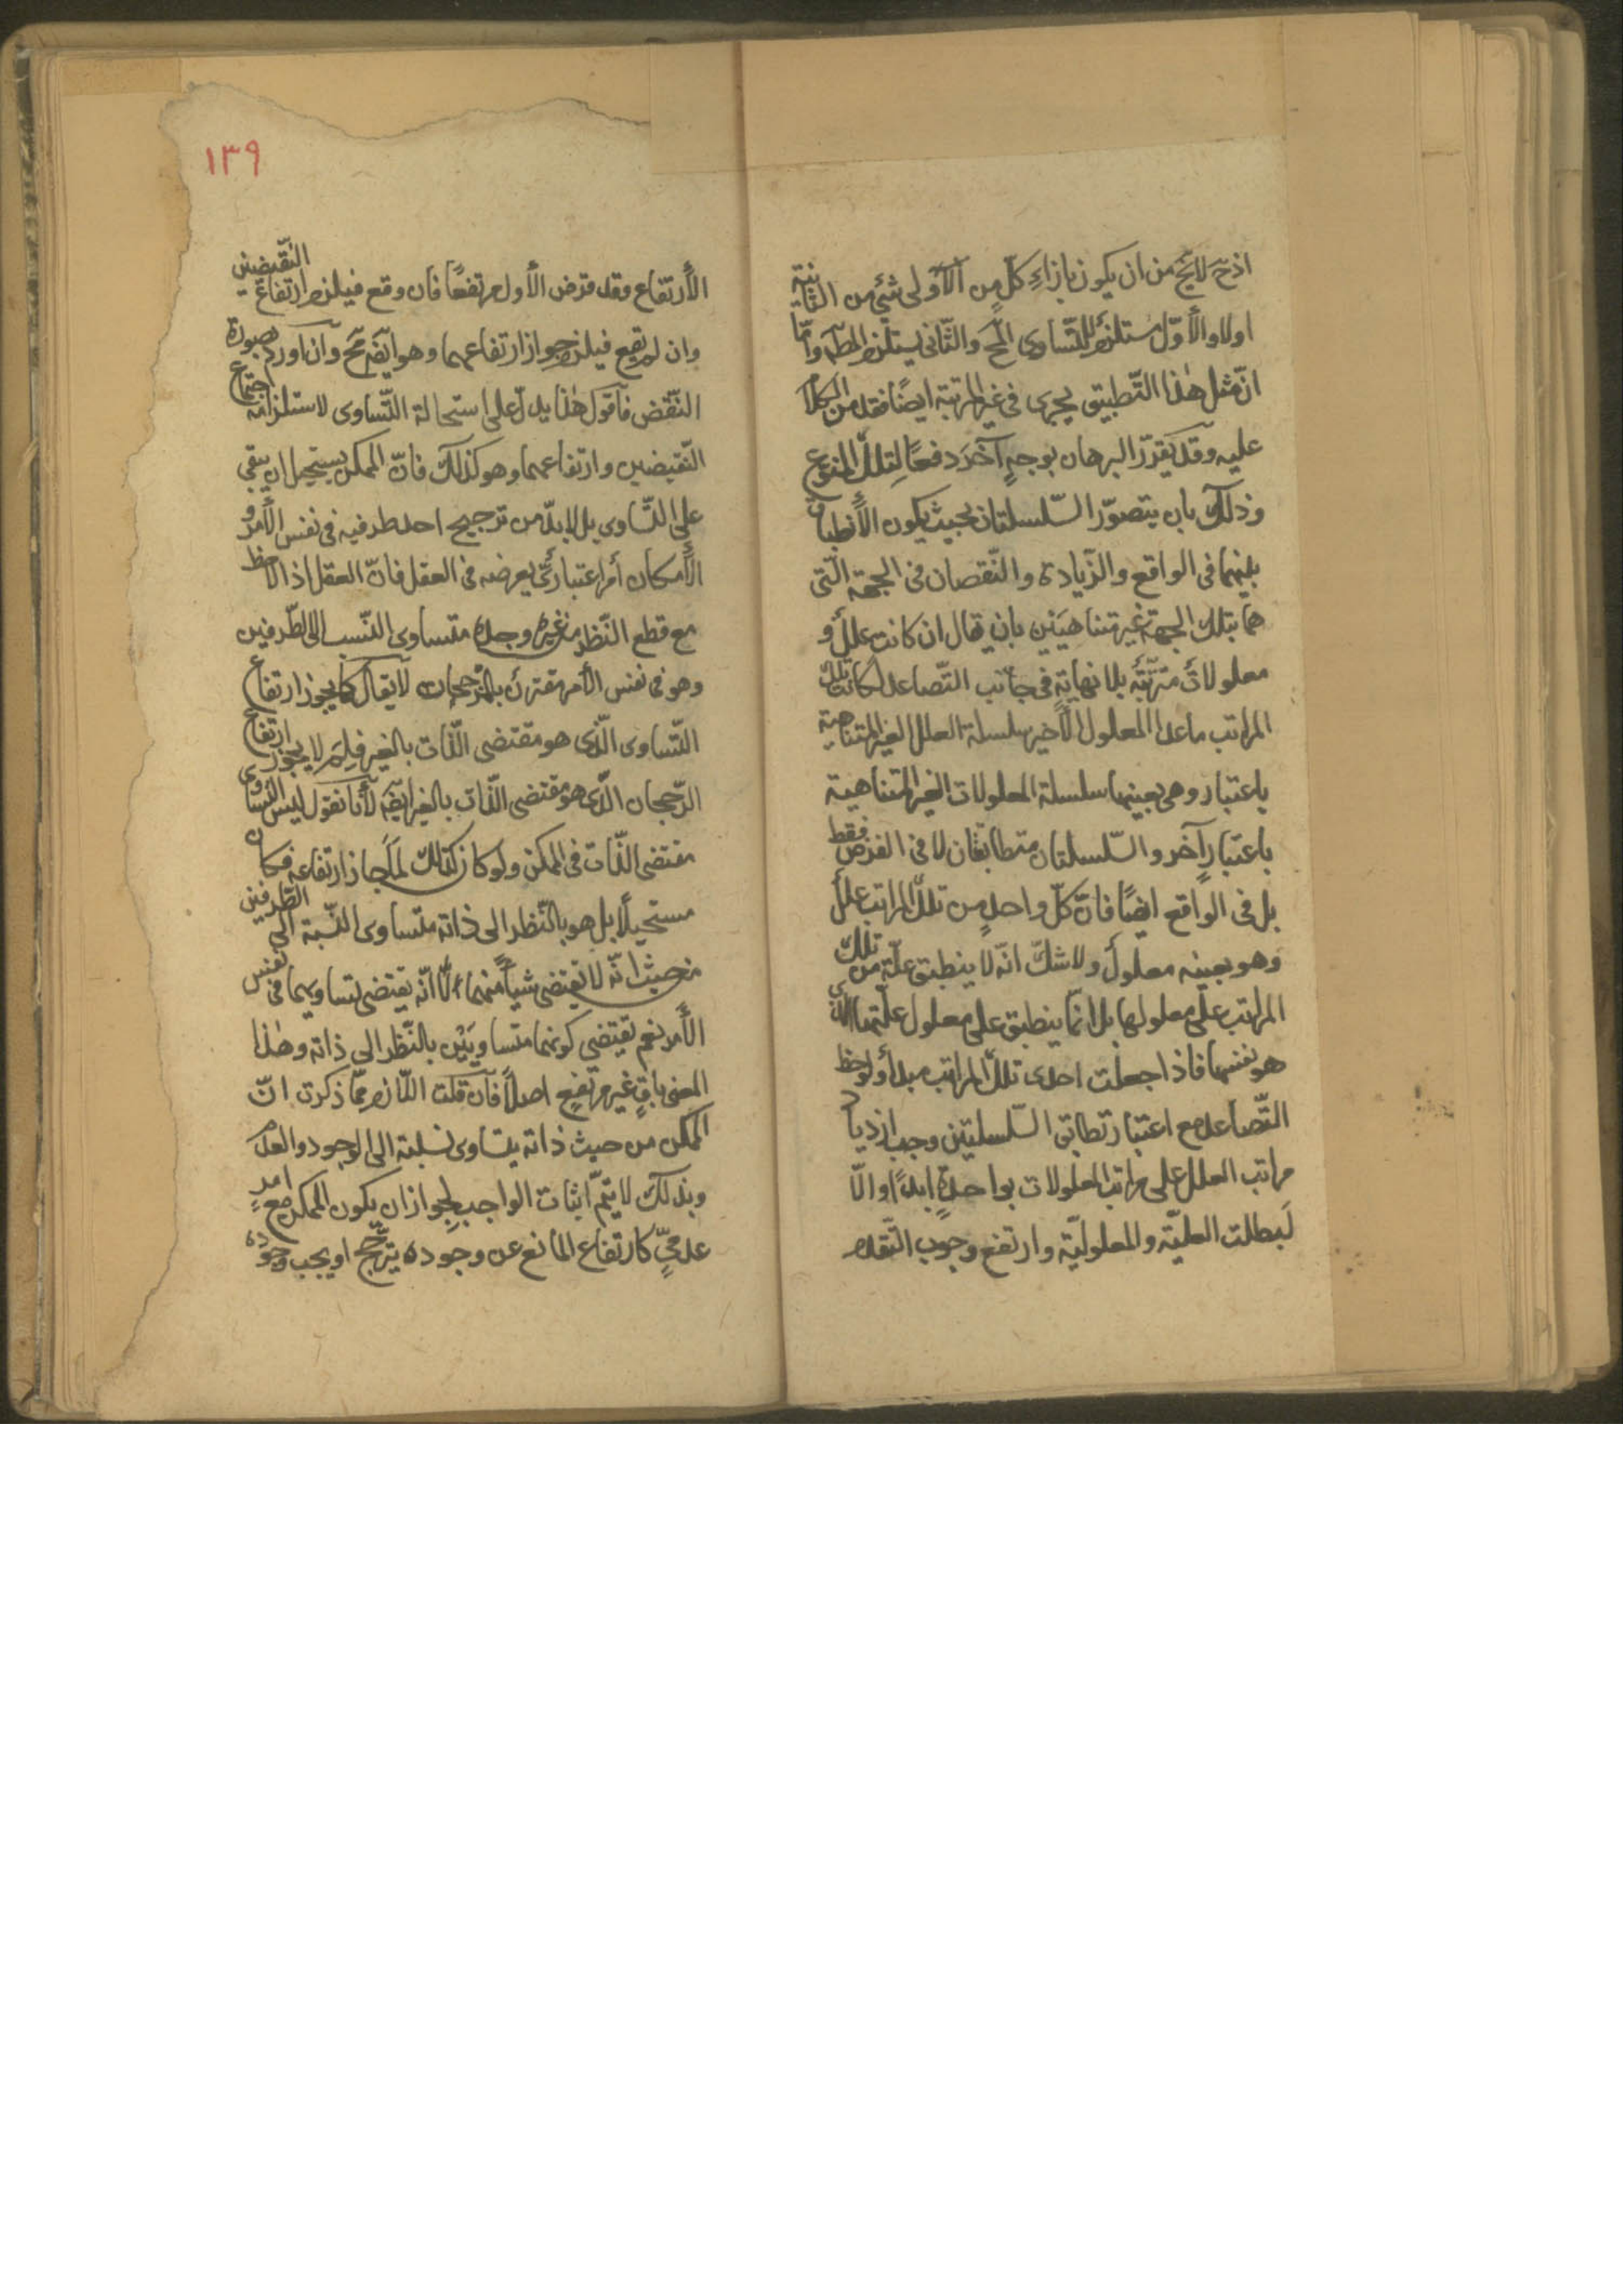 اذ ح لا يخ من ان يكون بازاء كل من الآولى شئ من الثانية
اولا والأوّل مستلزم للتّساوى المح والثّانى يستلزم المط وامّا
انّ مثل هٰذا التّطبيق يجرى فى غير المرتبة ايضًا فقد مرّ الكلام
عليه وقد يقرّر البرهان بوجهٍ آخر دفعًا لتلك المنوع
وذلك بان يتصوّر السّلسلتان بحيث يكون الأنطباق
بينهما فى الواقع والزّيادة والنّقصان فى الجهة الّتى
هما بتلك الجهة غير متناهيَتين بان يقال ان كانت عللٌ و
معلولاتٌ مترتّبة بلا نهايةٍ فى جانب التّصاعد لكانت تلك
المراتب ما عدا المعلول الأخير سلسلة العلل الغير المتناهية
باعتبار وهى بعينها سلسلة المعلولات الغير المتناهية
باعتبارٍ آخر والسّلسلتان متطابقان لا فى الفرض فقط
بل فى الواقع ايضًا فانّ كلّ واحدٍ من تلك المراتب علل
وهو بعينه معلولٌ ولا شكّ انّه لا ينطبق علّة من تلك
المراتب على معلولها بل انّما ينطبق على معلول علّتها الّذى
هو نفسها فاذا جعلت احدى تلك المراتب مبدأ ولوحظ
التّصاعد مع اعتبار تطابق السّلسلتين وجب ازدياد
مراتب العلل على مراتب المعلولات بواحدةٍ ابدًا والّا
لَبطلت العليّة والمعلوليّة وارتفع وجوب التّقدم
١٣٩
الأرتفاع وقد فرض الأول مرتفعًا فان وقع فيلزم ارتفاع النّقيضين
وان لم يقع فيلزم جواز ارتفاعهما وهو ايضً مح وان اورد بصورة
النّقض فاقول هٰذا يدلّ على استحالة التّساوى لاستلزامه اجتماع
النّقيضين وارتفاعهما وهو كذلك فانّ الممكن يستحيل ان يبقى
على التّساوى بل لا بدّ من ترجيح احد طرفيه فى نفس الأمر و
الأمكان أمر اعتبارىّ يعرضه فى العقل فانّ العقل اذا لاحظه
مع قطع النّظر من غيره وجده متساوى النّسب الى الطّرفين
وهو فى نفس الأمر مقترنٌ بالرّجحان لا يقال كما يجوز ارتفاع
التّساوى الّذى هو مقتضى الذّات بالغير فلِمَ لا يجوز ارتفاع
الرّجحان الّذى هو مقتضى الذّات بالغير ايضً لأنّا نقول ليس التّساوى
مقتضى الذّات فى الممكن ولو كان كذلك لمَا جاز ارتفاعه فكان
مستحيلًا بل هو بالنّظر الى ذاته متساوى النّسبة الى الطّرفين
من حيث انّه لا يقتضى شيأً منهما لا انّه يقتضى تساويهما فى نفس
الأمر نعم يقتضى كونهما متساويَيْن بالنّظر الى ذاته وهٰذا
المعنى باقٍ غير مرتفعٍ اصلًا فان قلت اللّازم ممّا ذكرت انّ
الممكن من حيث ذاته يتساوى نسبته الى الوجود والعدم
وبذلك لا يتمّ اثبات الواجب لجواز ان يكون الممكن مع امرٍ
عدمىٍّ كارتفاع المانع عن وجوده يترجّح او يجب وجوده